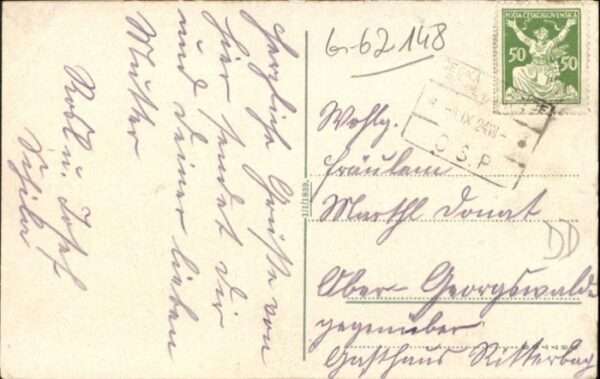 Herzliche Grüße von
hier sendet Dir
und deiner lieben
Mutter
Josef
G-62148
POŠTA ČESKOSLOVENSKÁ
50 50
IX 24
O.S.P.
Wohlg.
Fräulein
Marthl Donat
Ober Georgswalde
gegenüber
Gasthaus Ritterbag
DD